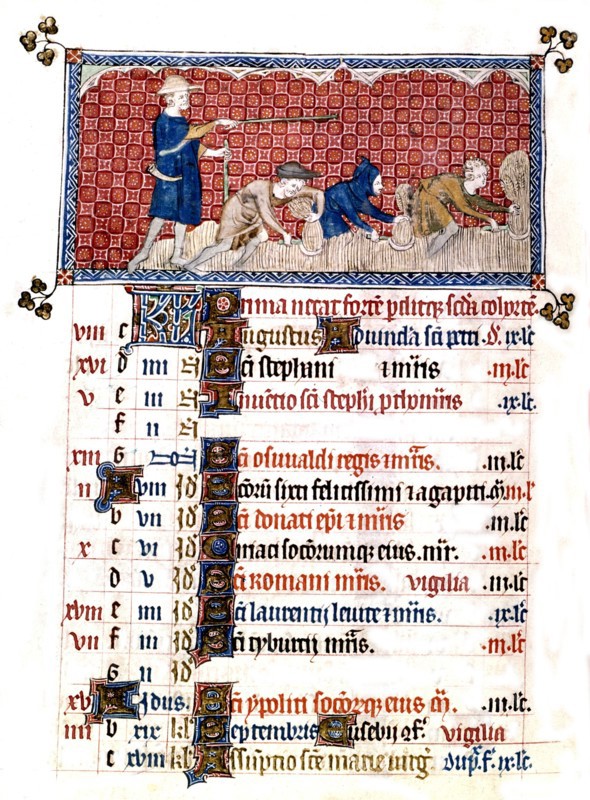 KL Prima necat fortē pditq; scdā cohortē
viii c Augustus Aduincła sci petri .D. ix lc
xvi d iiii Sci stephani ⁊ mris .iii. lc
v e iii Inuentio sci stephi pthomris .ix. lc.
f ii
xiii G Sci osuualdi regis ⁊ mris. .iii. lc
ii A viii id Scorū sixti felicissimi ⁊ agapiti. iii. l
b vii id Sci donati epi ⁊ mris .iii. lc
x c vi id Ciriaci sociorumq; eius. mr. .iii. lc
d v id Sci Romani mris. vigilia .iii. lc
xviii e iiii id Sci laurentij leuite ⁊ mris. .ix. lc
vii f iii id Sci tyburtij mris. .iii. lc
G ii id
xv A Idus. Sci ypoliti sociorq; eius .iii. lc.
iiii b xix kl Septembris Eusebij cf. vigilia
c xviii kl Assumptio sce marie uirg dup. f. ix. lc.